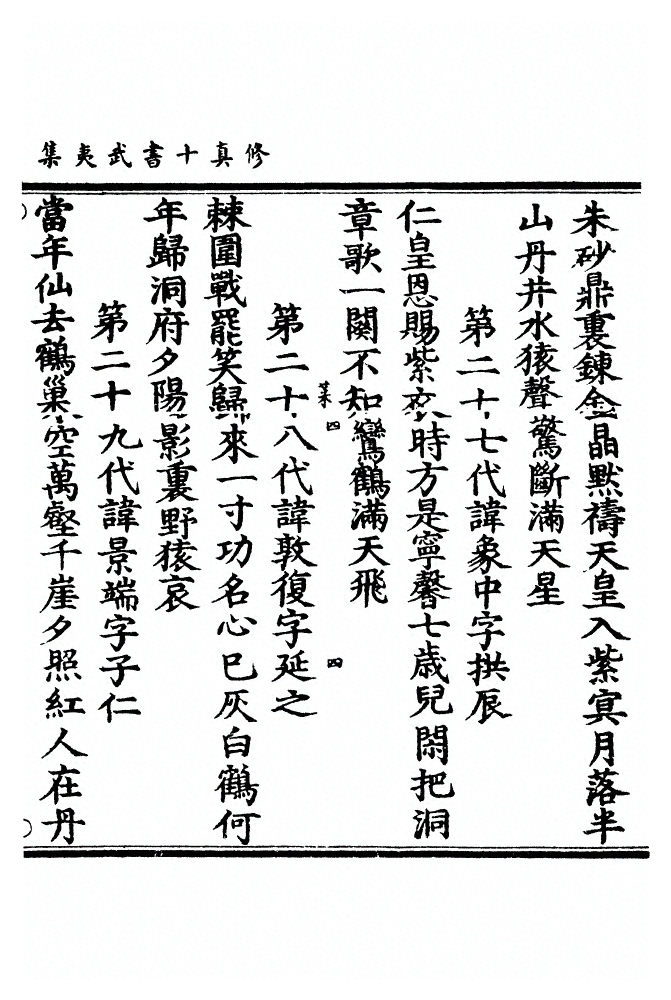 修真十書武夷集
朱砂鼎裏鍊金晶默禱天皇入紫㝠月落半
山丹井水猿聲驚斷滿天星
第二十七代諱象中字拱辰
仁皇恩賜紫衣時方是寧馨七歲兒閑把洞
章歌一闋不知鸞鶴滿天飛
菜四
四
第二十八代諱敦復字延之
棘圍戰罷笑歸來一寸功名心巳灰白鶴何
年歸洞府夕陽影裏野猿哀
第二十九代諱景端字子仁
當年仙去鶴巢空萬壑千崖夕照紅人在丹